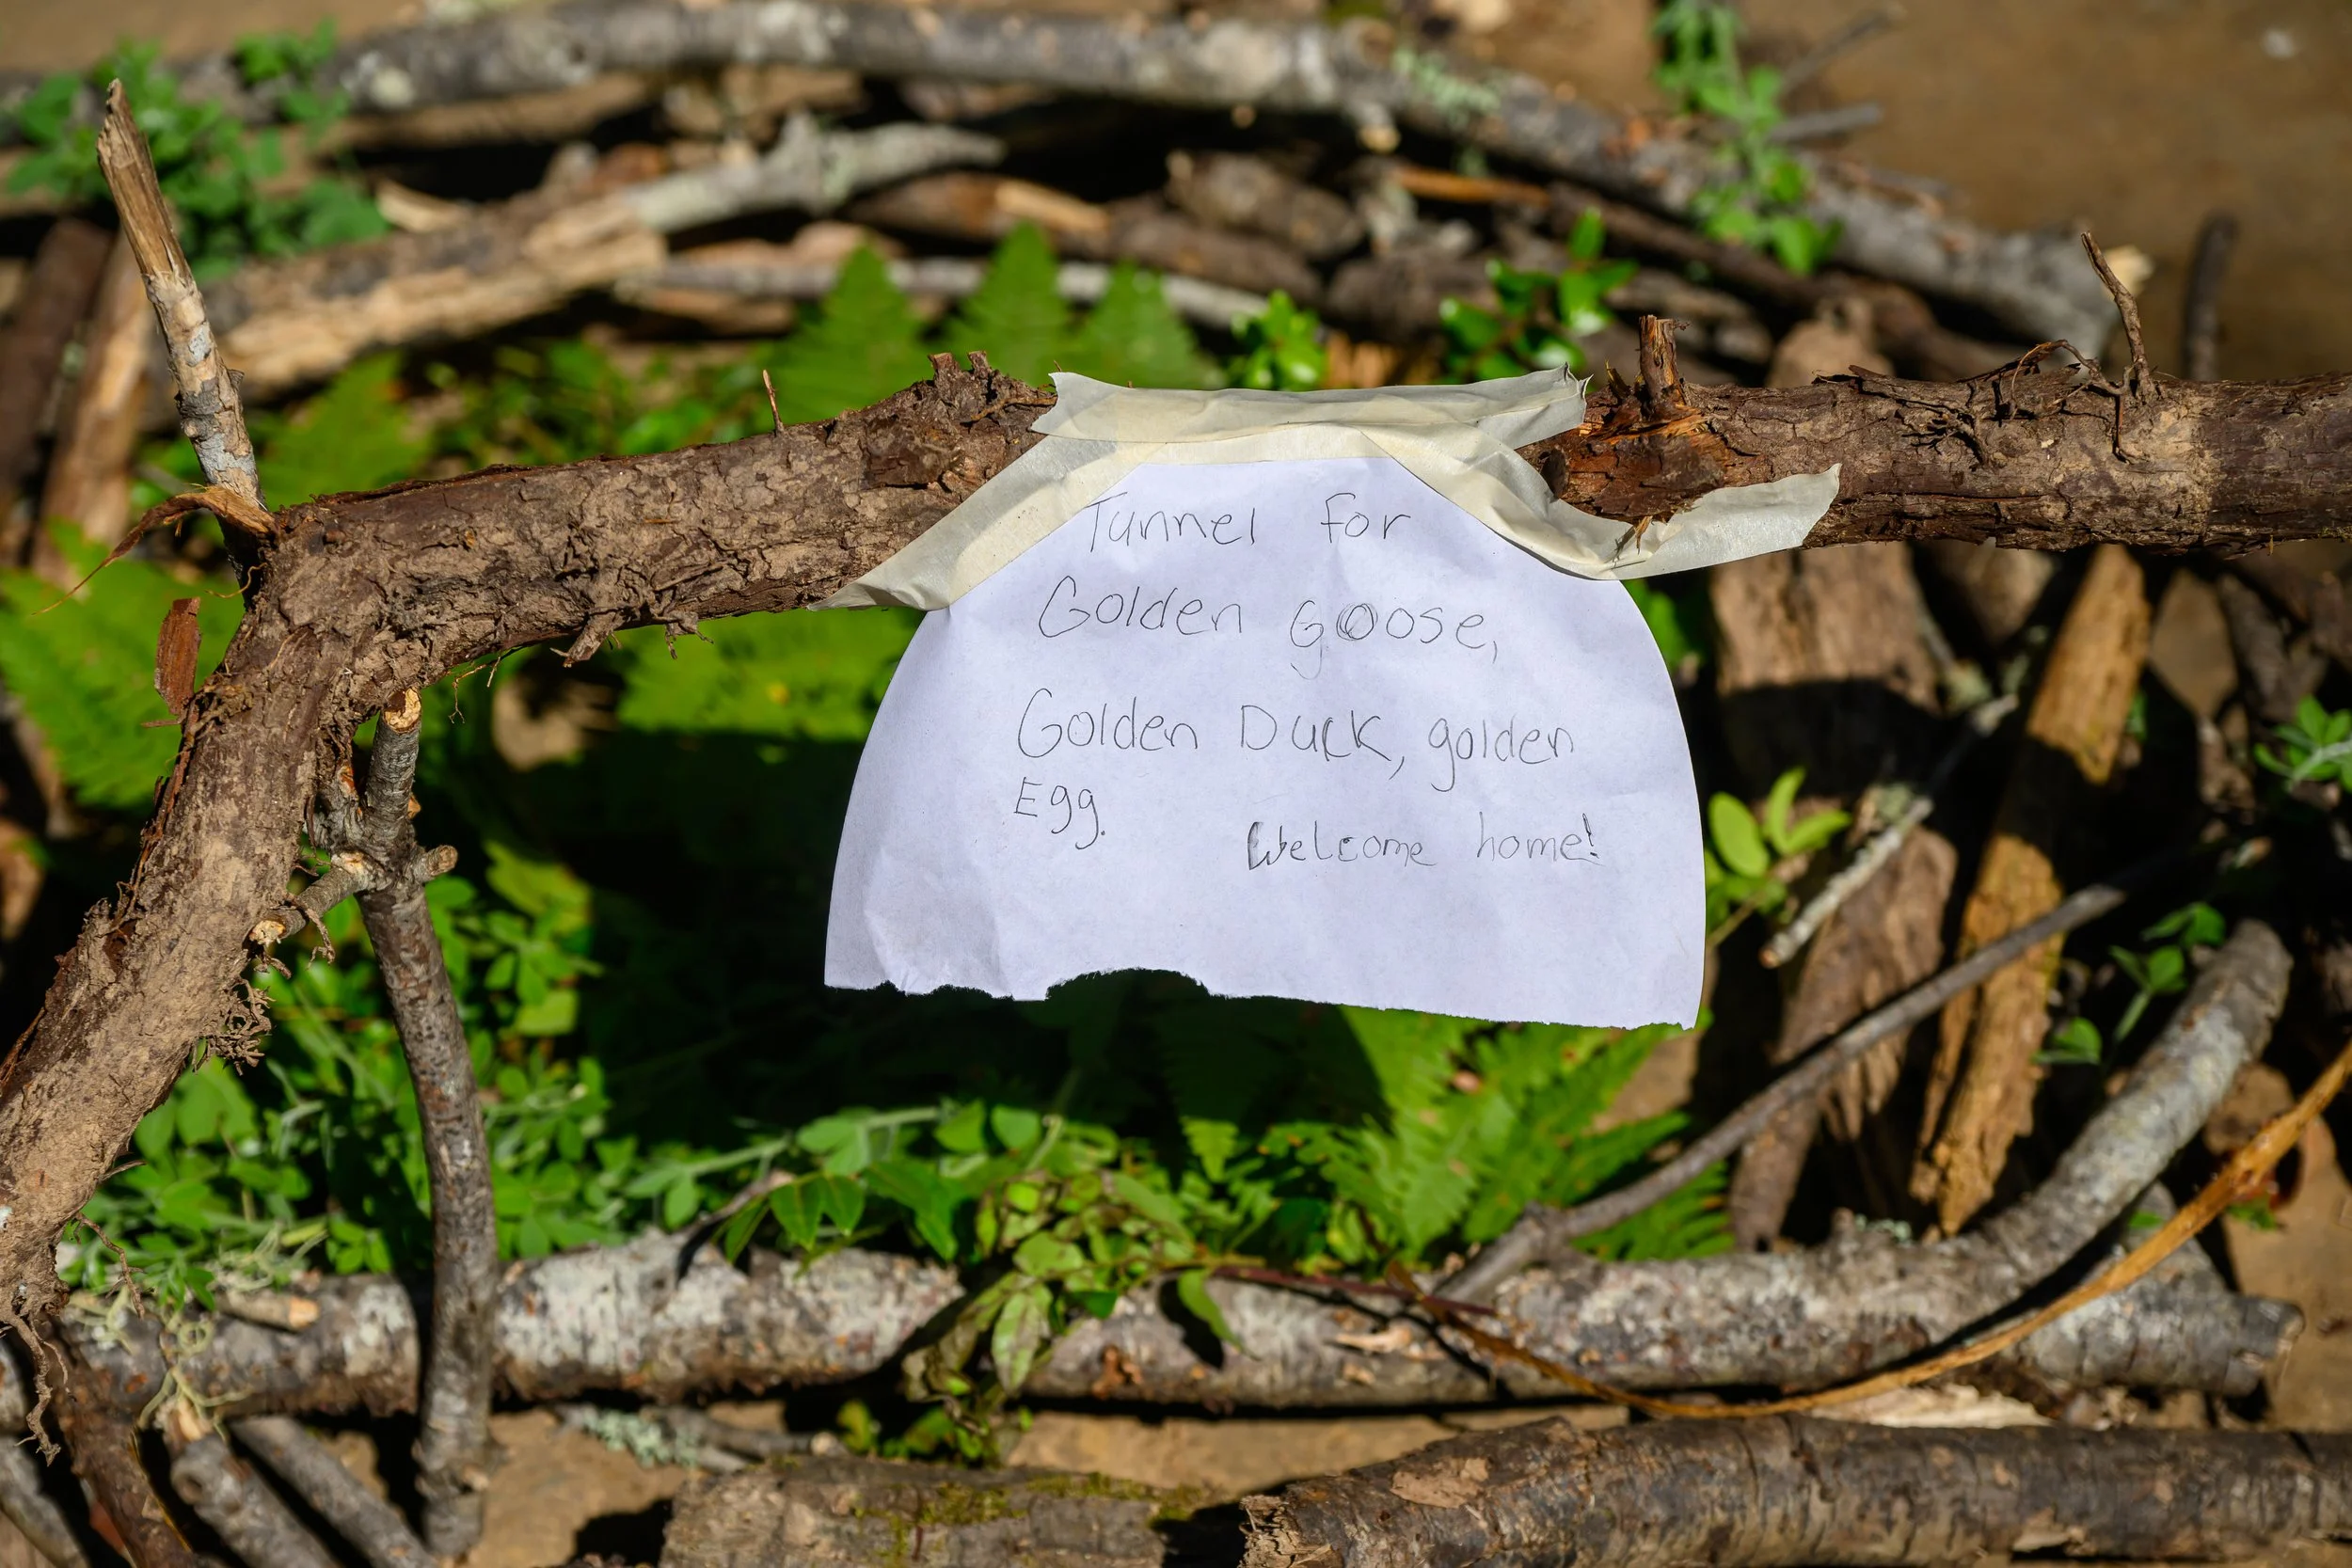 Tunnel for
Golden goose,
Golden Duck, golden
Egg.
Welcome home!